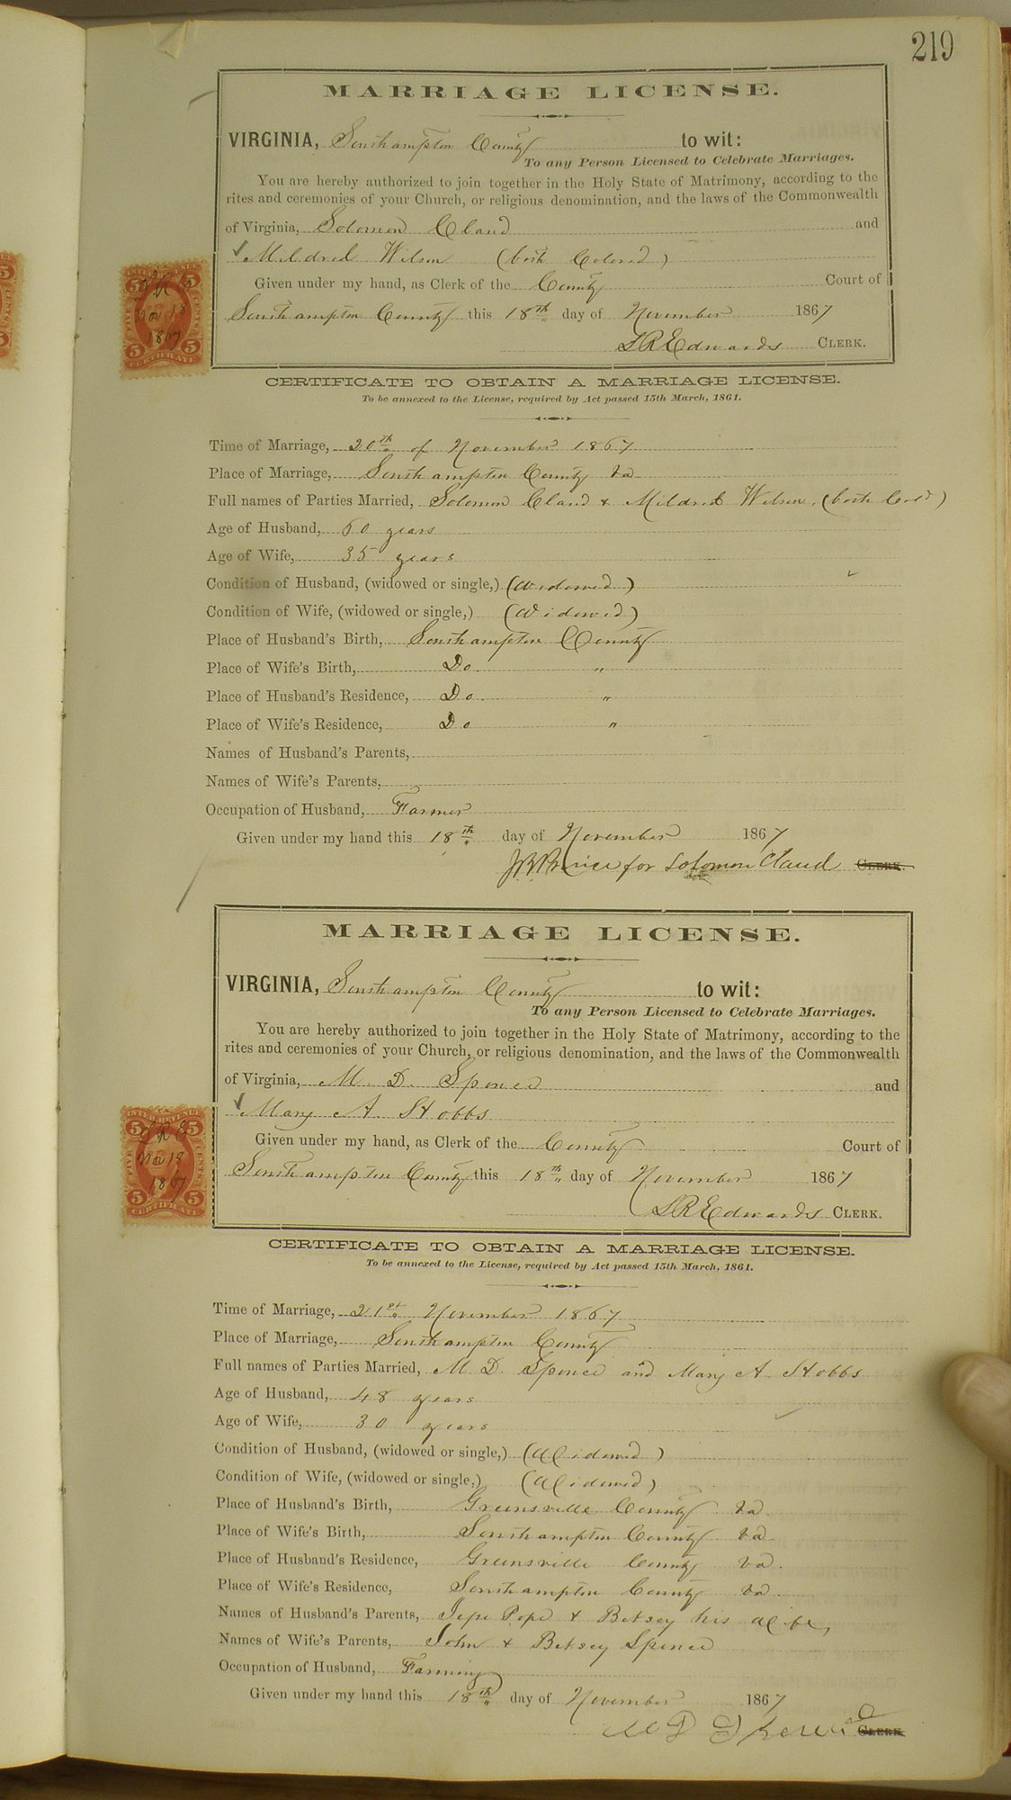 219
MARRIAGE LICENSE.
VIRGINIA, Southampton County to wit:
To any Person Licensed to Celebrate Marriages.
You are hereby authorized to join together in the Holy State of Matrimony, according to the
rites and ceremonies of your Church, or religious denomination, and the laws of the Commonwealth
of Virginia, Solomon Claud and
Mildred Wilson (both Colored)
Given under my hand, as Clerk of the County Court of
Southampton County this 18th day of November 1867
LREdwards CLERK.
5 5
Nov 18
1867
5 5
CERTIFICATE
CERTIFICATE TO OBTAIN A MARRIAGE LICENSE.
To be annexed to the License, required by Act passed 15th March, 1861.
Time of Marriage, 20th of November 1867
Place of Marriage, Southampton County Va
Full names of Parties Married, Solomon Claud & Mildred Wilson, (both Cold)
Age of Husband, 60 years
Age of Wife, 35 years
Condition of Husband, (widowed or single,) (Widowed)
Condition of Wife, (widowed or single,) (Widowed)
Place of Husband's Birth, Southampton County
Place of Wife's Birth, Do "
Place of Husband's Residence, Do "
Place of Wife's Residence, Do "
Names of Husband's Parents,
Names of Wife's Parents,
Occupation of Husband, Farmer
Given under my hand this 18th day of November 1867
Prince for Solomon Claud CLERK.
MARRIAGE LICENSE.
VIRGINIA, Southampton County to wit:
To any Person Licensed to Celebrate Marriages.
You are hereby authorized to join together in the Holy State of Matrimony, according to the
rites and ceremonies of your Church, or religious denomination, and the laws of the Commonwealth
of Virginia, M. D. Spence and
Mary A. Stobbs
Given under my hand, as Clerk of the County Court of
Southampton County this 18th day of November 1867
LREdwards CLERK.
INTER. REVENUE
5 LRE 5
Nov 18
1867
5 5
CERTIFICATE
CERTIFICATE TO OBTAIN A MARRIAGE LICENSE.
To be annexed to the License, required by Act passed 15th March, 1861.
Time of Marriage, 21st November 1867
Place of Marriage, Southampton County
Full names of Parties Married, M. D. Spence and Mary A. Stobbs
Age of Husband, 48 years
Age of Wife, 30 years
Condition of Husband, (widowed or single,) (Widowed)
Condition of Wife, (widowed or single,) (Widowed)
Place of Husband's Birth, Greensville County Va
Place of Wife's Birth, Southampton County Va
Place of Husband's Residence, Greensville County Va.
Place of Wife's Residence, Southampton County Va
Names of Husband's Parents, Pope & Betsey his wife,
Names of Wife's Parents, John & Betsey Spence
Occupation of Husband, Farming
Given under my hand this 18th day of November 1867
M D Spence CLERK